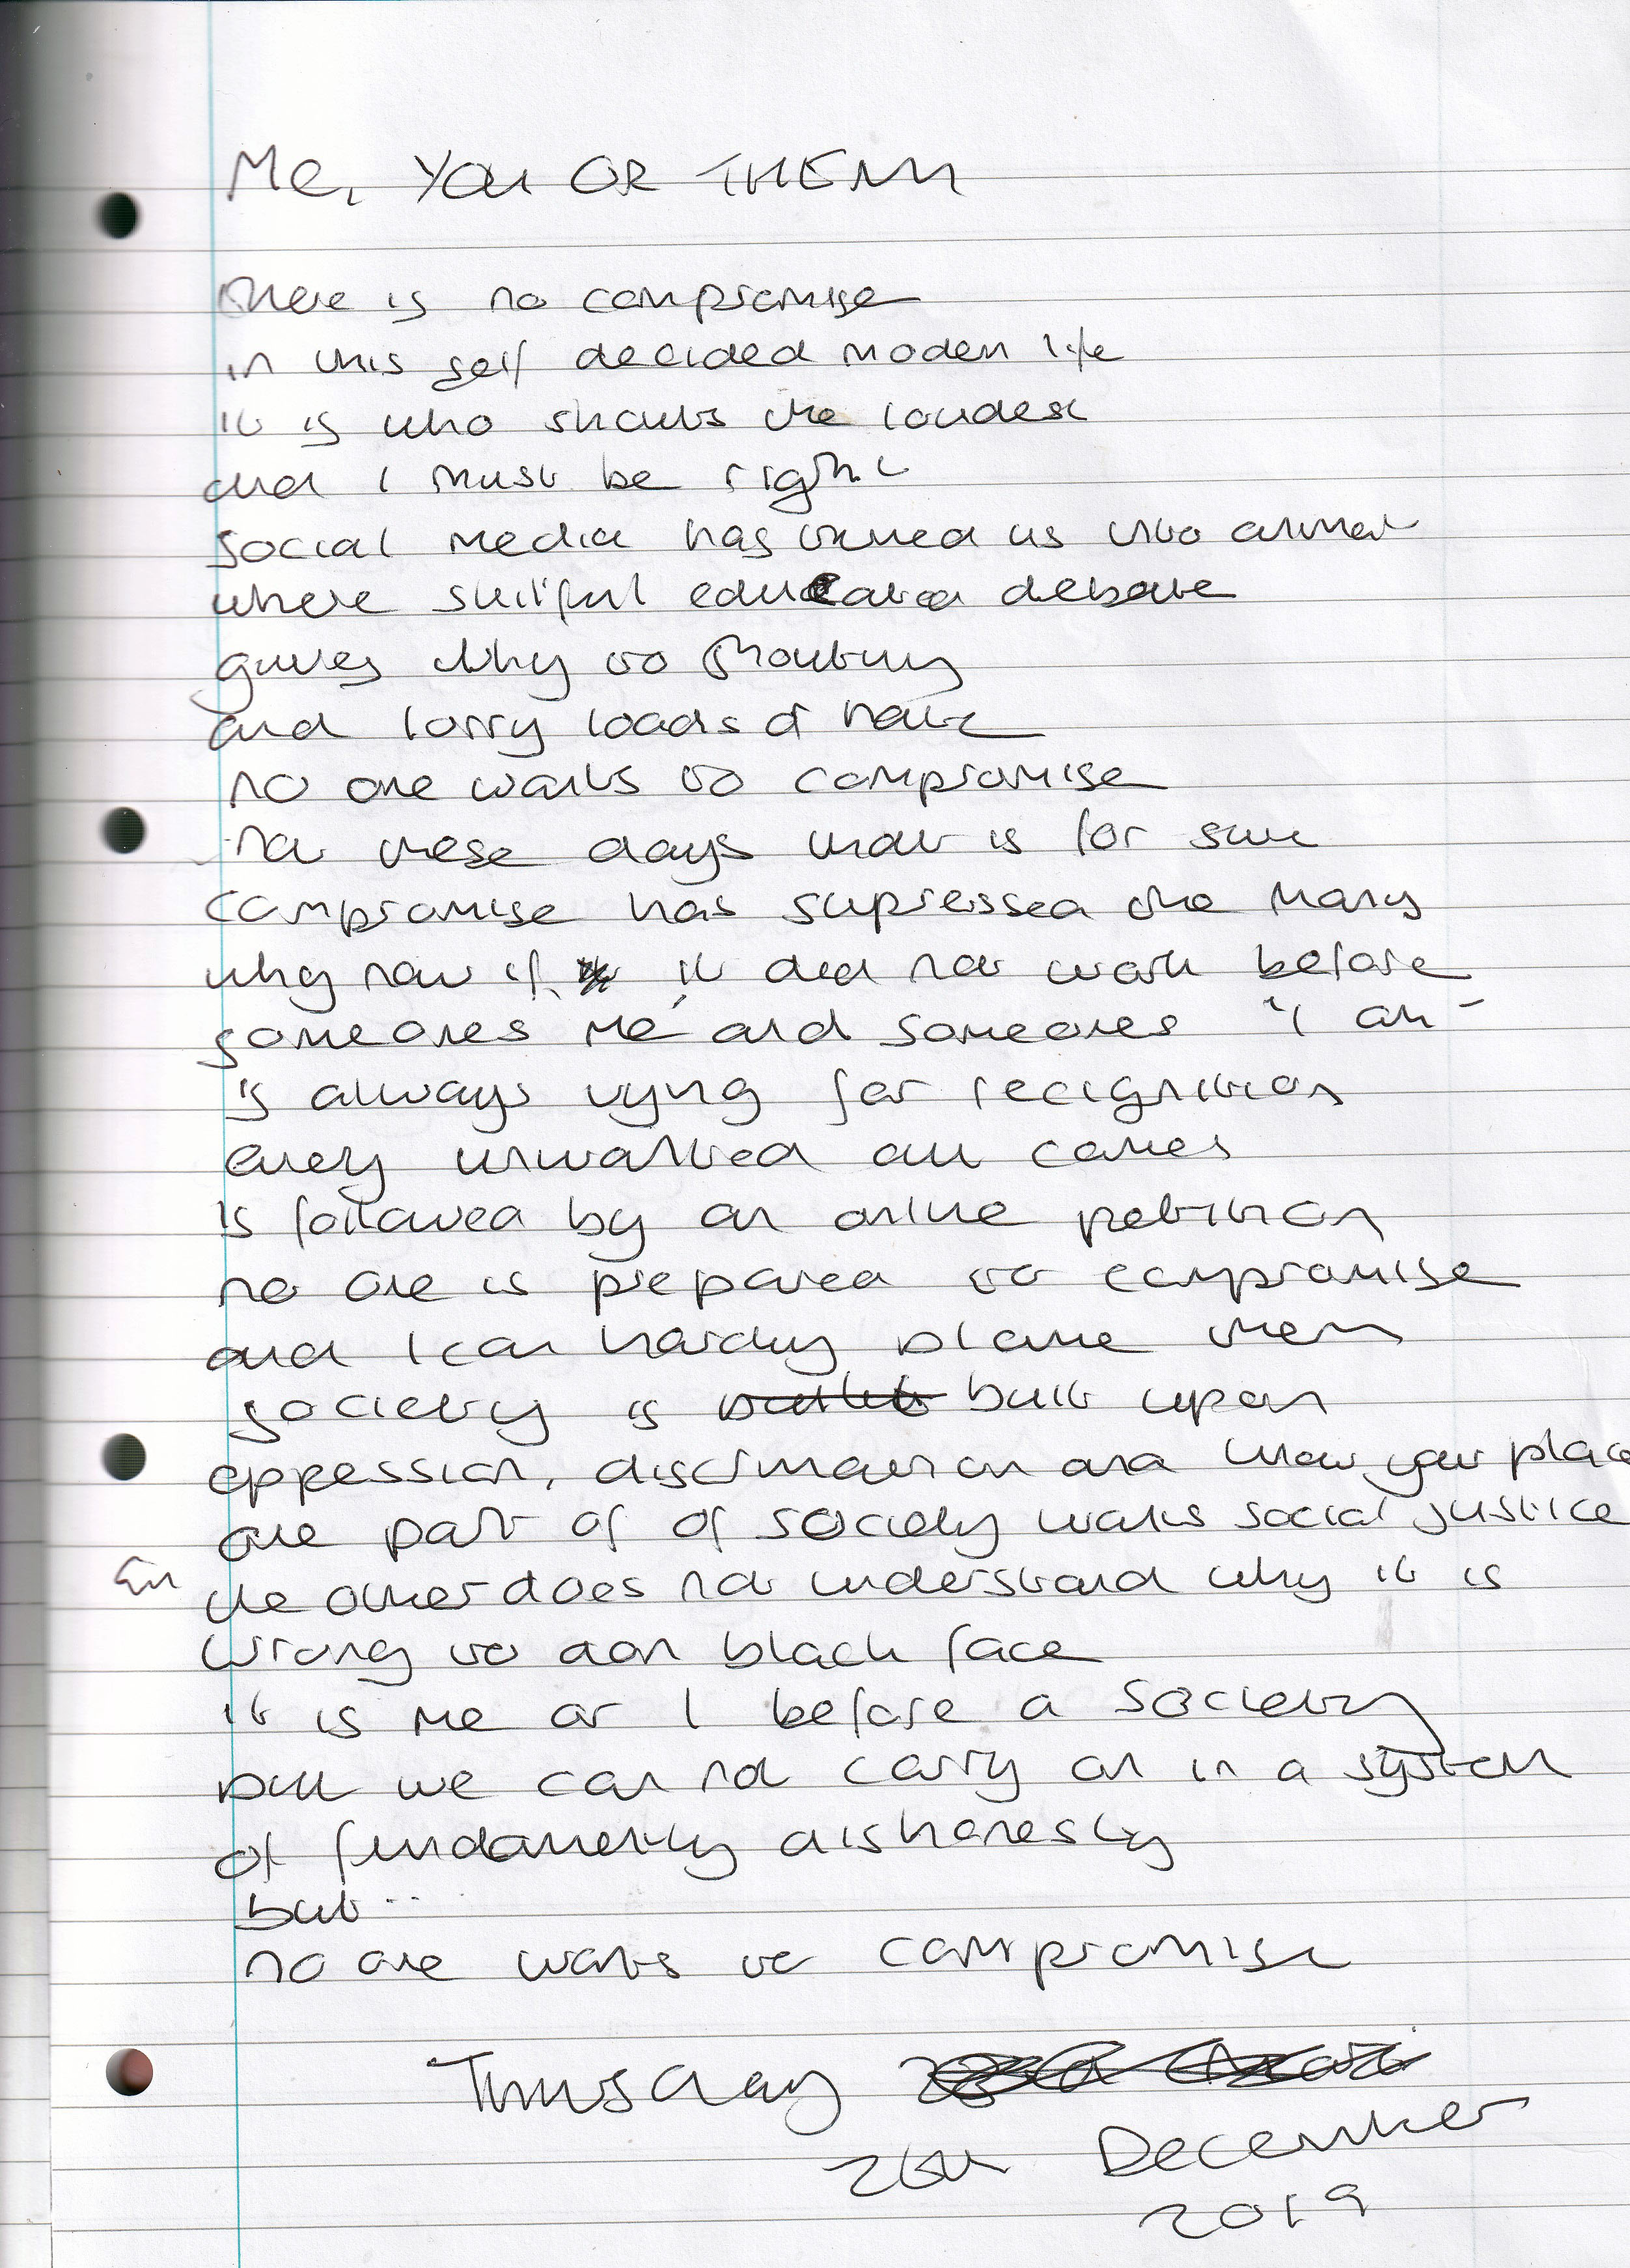 Me, YOU OR THEM
there is no compromise
in this self decided moden life
it is who shouts the loudest
and I must be right
social media has turned us into animat
where skilful educated debate
gives why to shouting
and lorry loads of hate
no one wants to compromise
not these days that is for sure
compromise has supressed the many
why now if it did not work before
someones me and someones "I am"
is always vying for recignition
every unwanted out comes
is followed by an online petition
no one is prepared to compromise
and I can hardly blame them
society is built upon
oppession, discrimination and know your place
one part of of society wants social justice
the other does not understand why it is
wrong to don black face
it is me or I before a society
but we can not carry on in a system
of fundamently dishonesty
but...
no one wants to compromise
Thursday
26th December
2019